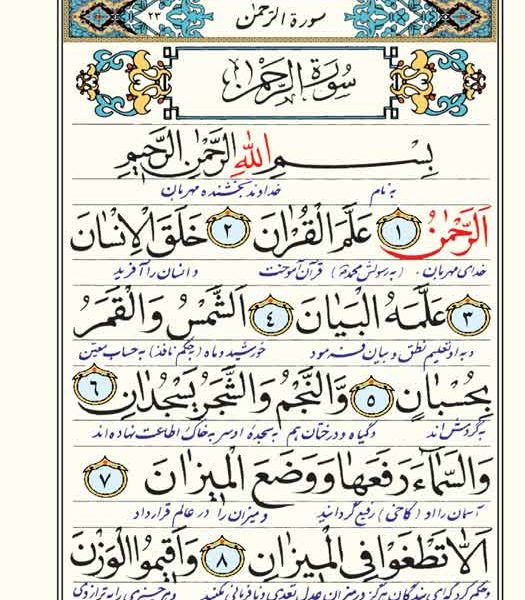 سورة الرّحمٰن ٢٣
سُورَةُ الرَّحْمٰنِ
بِسْمِ اللهِ الرَّحْمٰنِ الرَّحِيمِ
به نام خداوند بخشنده مهربان
اَلرَّحْمٰنُ ١ عَلَّمَ الْقُرْاٰنَ ٢ خَلَقَ الْاِنْسَانَ
خدای مهربان. (به رسولش محمدﷺ) قرآن آموخت و انسان را آفرید
٣ عَلَّمَهُ الْبَيَانَ ٤ اَلشَّمْسُ وَالْقَمَرُ
و به او تعلیم نطق و بیان فرمود خورشید و ماه (به حکم نافذ) به حساب معین
بِحُسْبَانٍ ٥ وَالنَّجْمُ وَالشَّجَرُ يَسْجُدَانِ ٦
به گردش اند و گیاه و درختان هم به سجدهٔ او سر به خاک اطاعت نهاده اند
وَالسَّمَاءَ رَفَعَهَا وَوَضَعَ الْمِيزَانَ ٧
آسمان را او (کاخی) رفیع گردانید و میزان را در عالم قرار داد
اَلَّا تَطْغَوْا فِي الْمِيزَانِ ٨ وَاَقِيمُوا الْوَزْنَ
و حکم کرد که ای بندگان هرگز در میزان عدل تعدی و نافرمانی نکنید و هر چیزی را به ترازوی